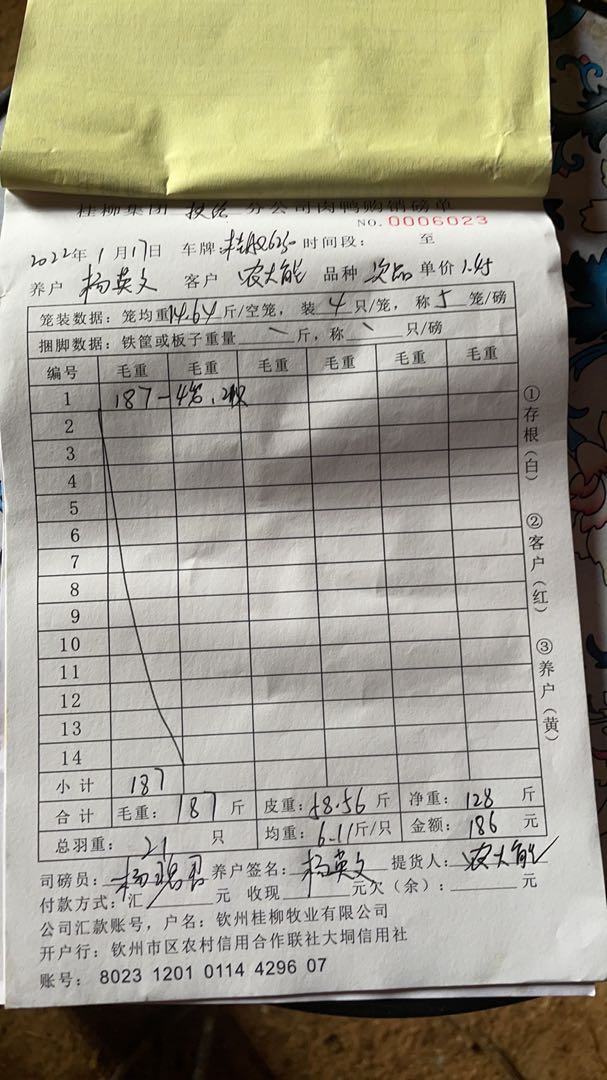 桂柳集团 分公司肉鸭购销磅单
NO. 0006023
2022年1月17日 车牌: 时间段: 至
养户 杨英文 客户 农大能 品种 次品 单价 1.45
笼装数据: 笼均重14.64斤/空笼, 装4只/笼, 称5笼/磅
捆脚数据: 铁筐或板子重量\斤, 称\只/磅
编号 毛重 毛重 毛重 毛重 毛重 毛重
1 187-4笼,
2
3
4
5
6
7
8
9
10
11
12
13
14
小计 187
合计 毛重: 187斤 皮重: 58.56斤 净重: 128斤
总羽重: 21只 均重: 6.11斤/只 金额: 186元
司磅员: 养户签名: 杨英文 提货人: 农大能
付款方式: 汇 元 收现 元欠(余): 元
公司汇款账号, 户名: 钦州桂柳牧业有限公司
开户行: 钦州市区农村信用合作联社大垌信用社
账号: 8023 1201 0114 4296 07
①存根(白) ②客户(红) ③养户(黄)